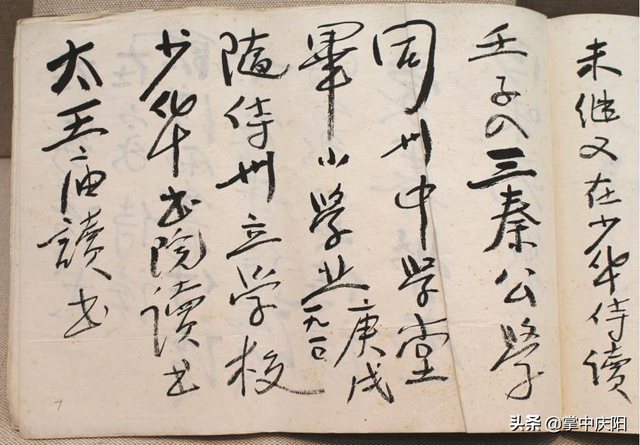 未继又在少华侍讀
壬子入三秦公學
同州中學堂
畢小學业庚戌
一九一〇
随侍州立学校
少华书院讀书
太王庙讀书
头条 @掌中庆阳